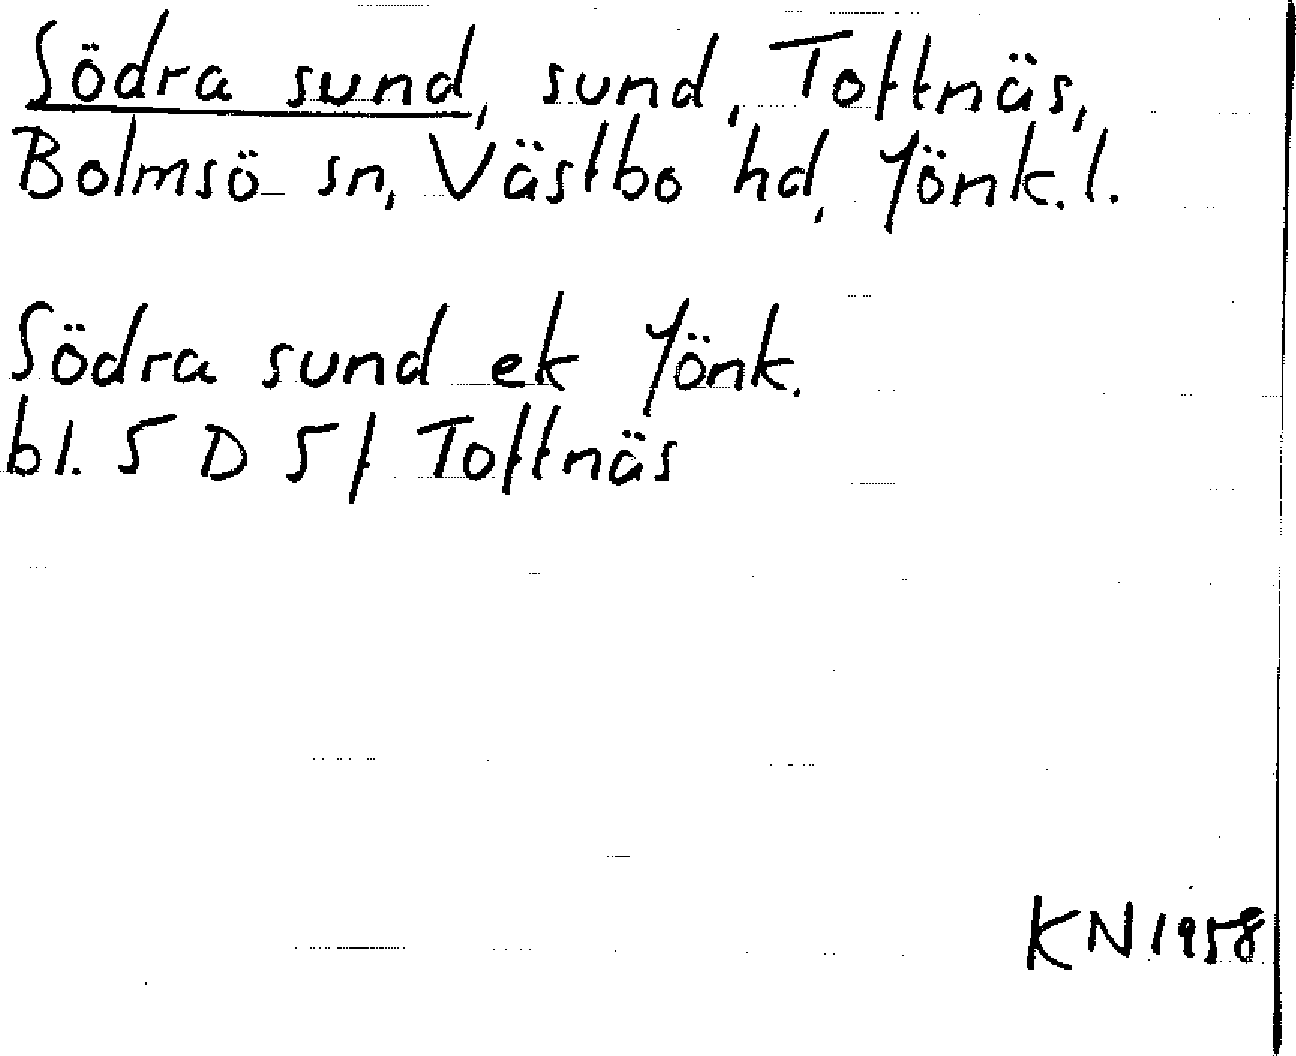 Södra sund, sund, Toftnäs,
Bolmsö sn, Västbo hd, Jönk. l.
Södra sund ek Jönk.
bl. 5 D 5f Toftnäs
KN 1958